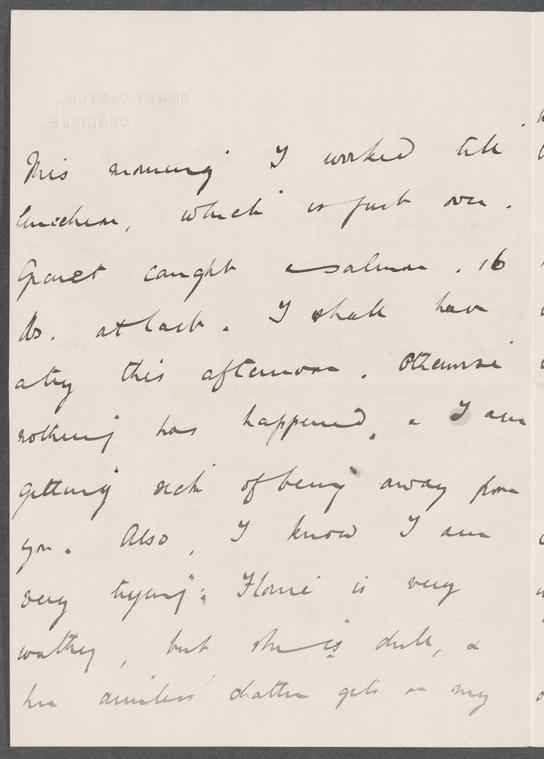 CORBY CASTLE,
CARLISLE.
This morning I worked till
luncheon, which is just over.
caught a salmon, 16
lbs. at last. I shall have
a try this afternoon. Otherwise
nothing has happened, & I am
getting sick of being away from
you. Also, I know I am
very trying: Florrie is very
worthy, but she is dull, &
her aimless chatter gets on my